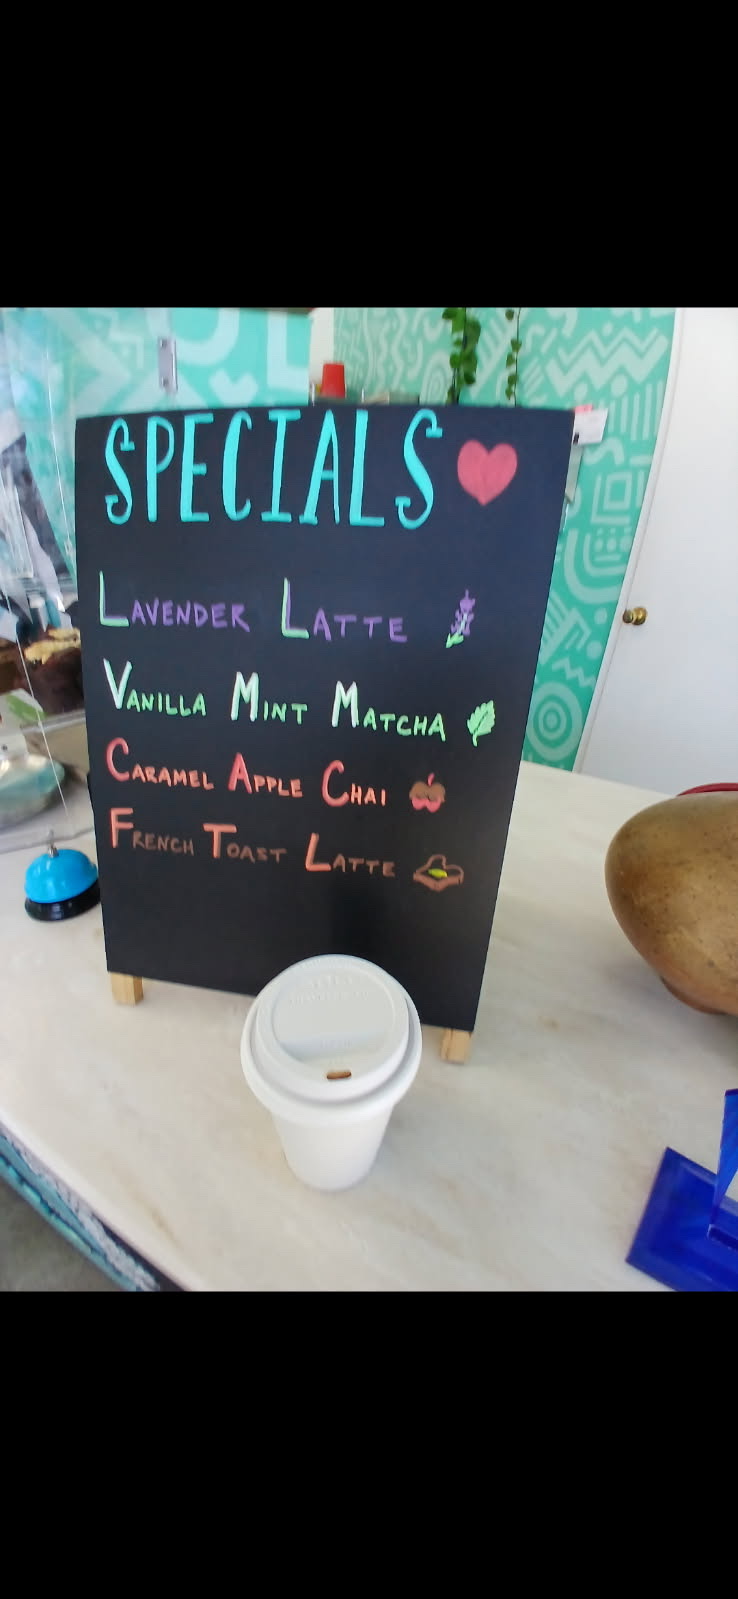 SPECIALS
LAVENDER LATTE
VANILLA MINT MATCHA
CARAMEL APPLE CHAI
FRENCH TOAST LATTE